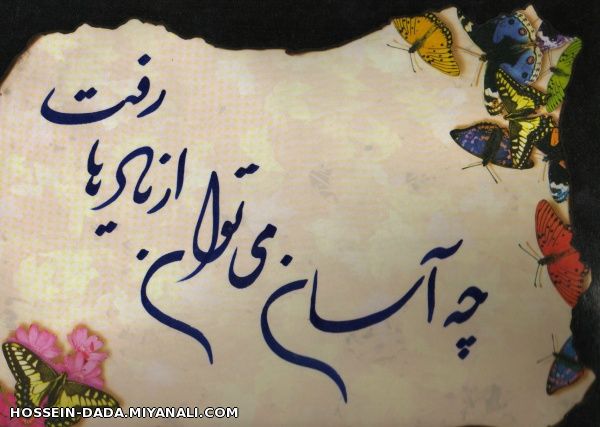 چه آسان می توان از یادها رفت
HOSSEIN-DADA.MIYANALI.COM